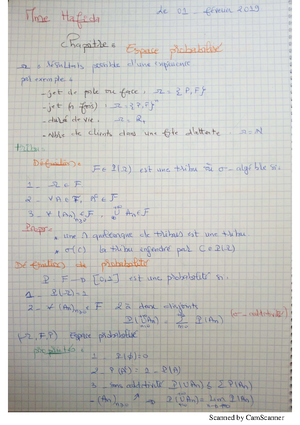 Mme Hafidi
Le 01 - février 2019
Chapitre : Espace probabilisé
Ω = résultats possible d'une expérience
par exemple :
- jet de pile ou face : Ω = {P,F}
- jet (n fois) : Ω = {P,F}ⁿ
- durée de vie : Ω = R₊
- Nbre de clients dans une file d'attente Ω = N
tribu :
Définition :
F ⊂ P(Ω) est une tribu ou σ-algèbre si :
1_ Ω ∈ F
2_ ∀A ∈ F, Aᶜ ∈ F
3_ ∀ (An)n≥0 ∈ F, ∪ An ∈ F
Prop :
* une ∩ quelconque de tribus est une tribu
* σ(C) la tribu engendré par C ⊂ P(Ω)
Définition de probabilité
P : F → [0,1] est une probabilité si :
1_ P(Ω) = 1
2_ ∀ (An)n≥0 ∈ F 2 à 2 disjoints
P(∪An) = Σ P(An) (σ-additivité)
(Ω, F, P) Espace probabilisé
1_ P(∅) = 0
2_ P(Aᶜ) = 1 - P(A)
3_ sous additivité P(∪An) ≤ Σ P(An)
- (An)n≥0 ↗ ⇒ P(∪An) = lim P(An)
Scanned by CamScanner